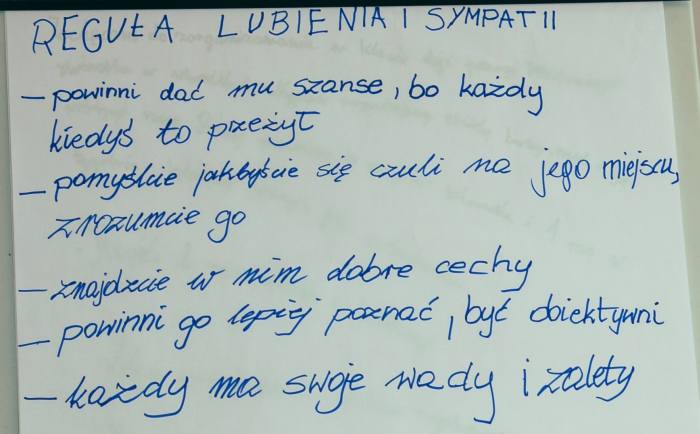 REGUŁA LUBIENIA I SYMPATII
– powinni dać mu szanse, bo każdy
kiedyś to przeżył
– pomyślcie jakbyście się czuli na jego miejscu,
zrozumcie go
– znajdzcie w nim dobre cechy
– powinni go lepiej poznać, być obiektywni
– każdy ma swoje wady i zalety